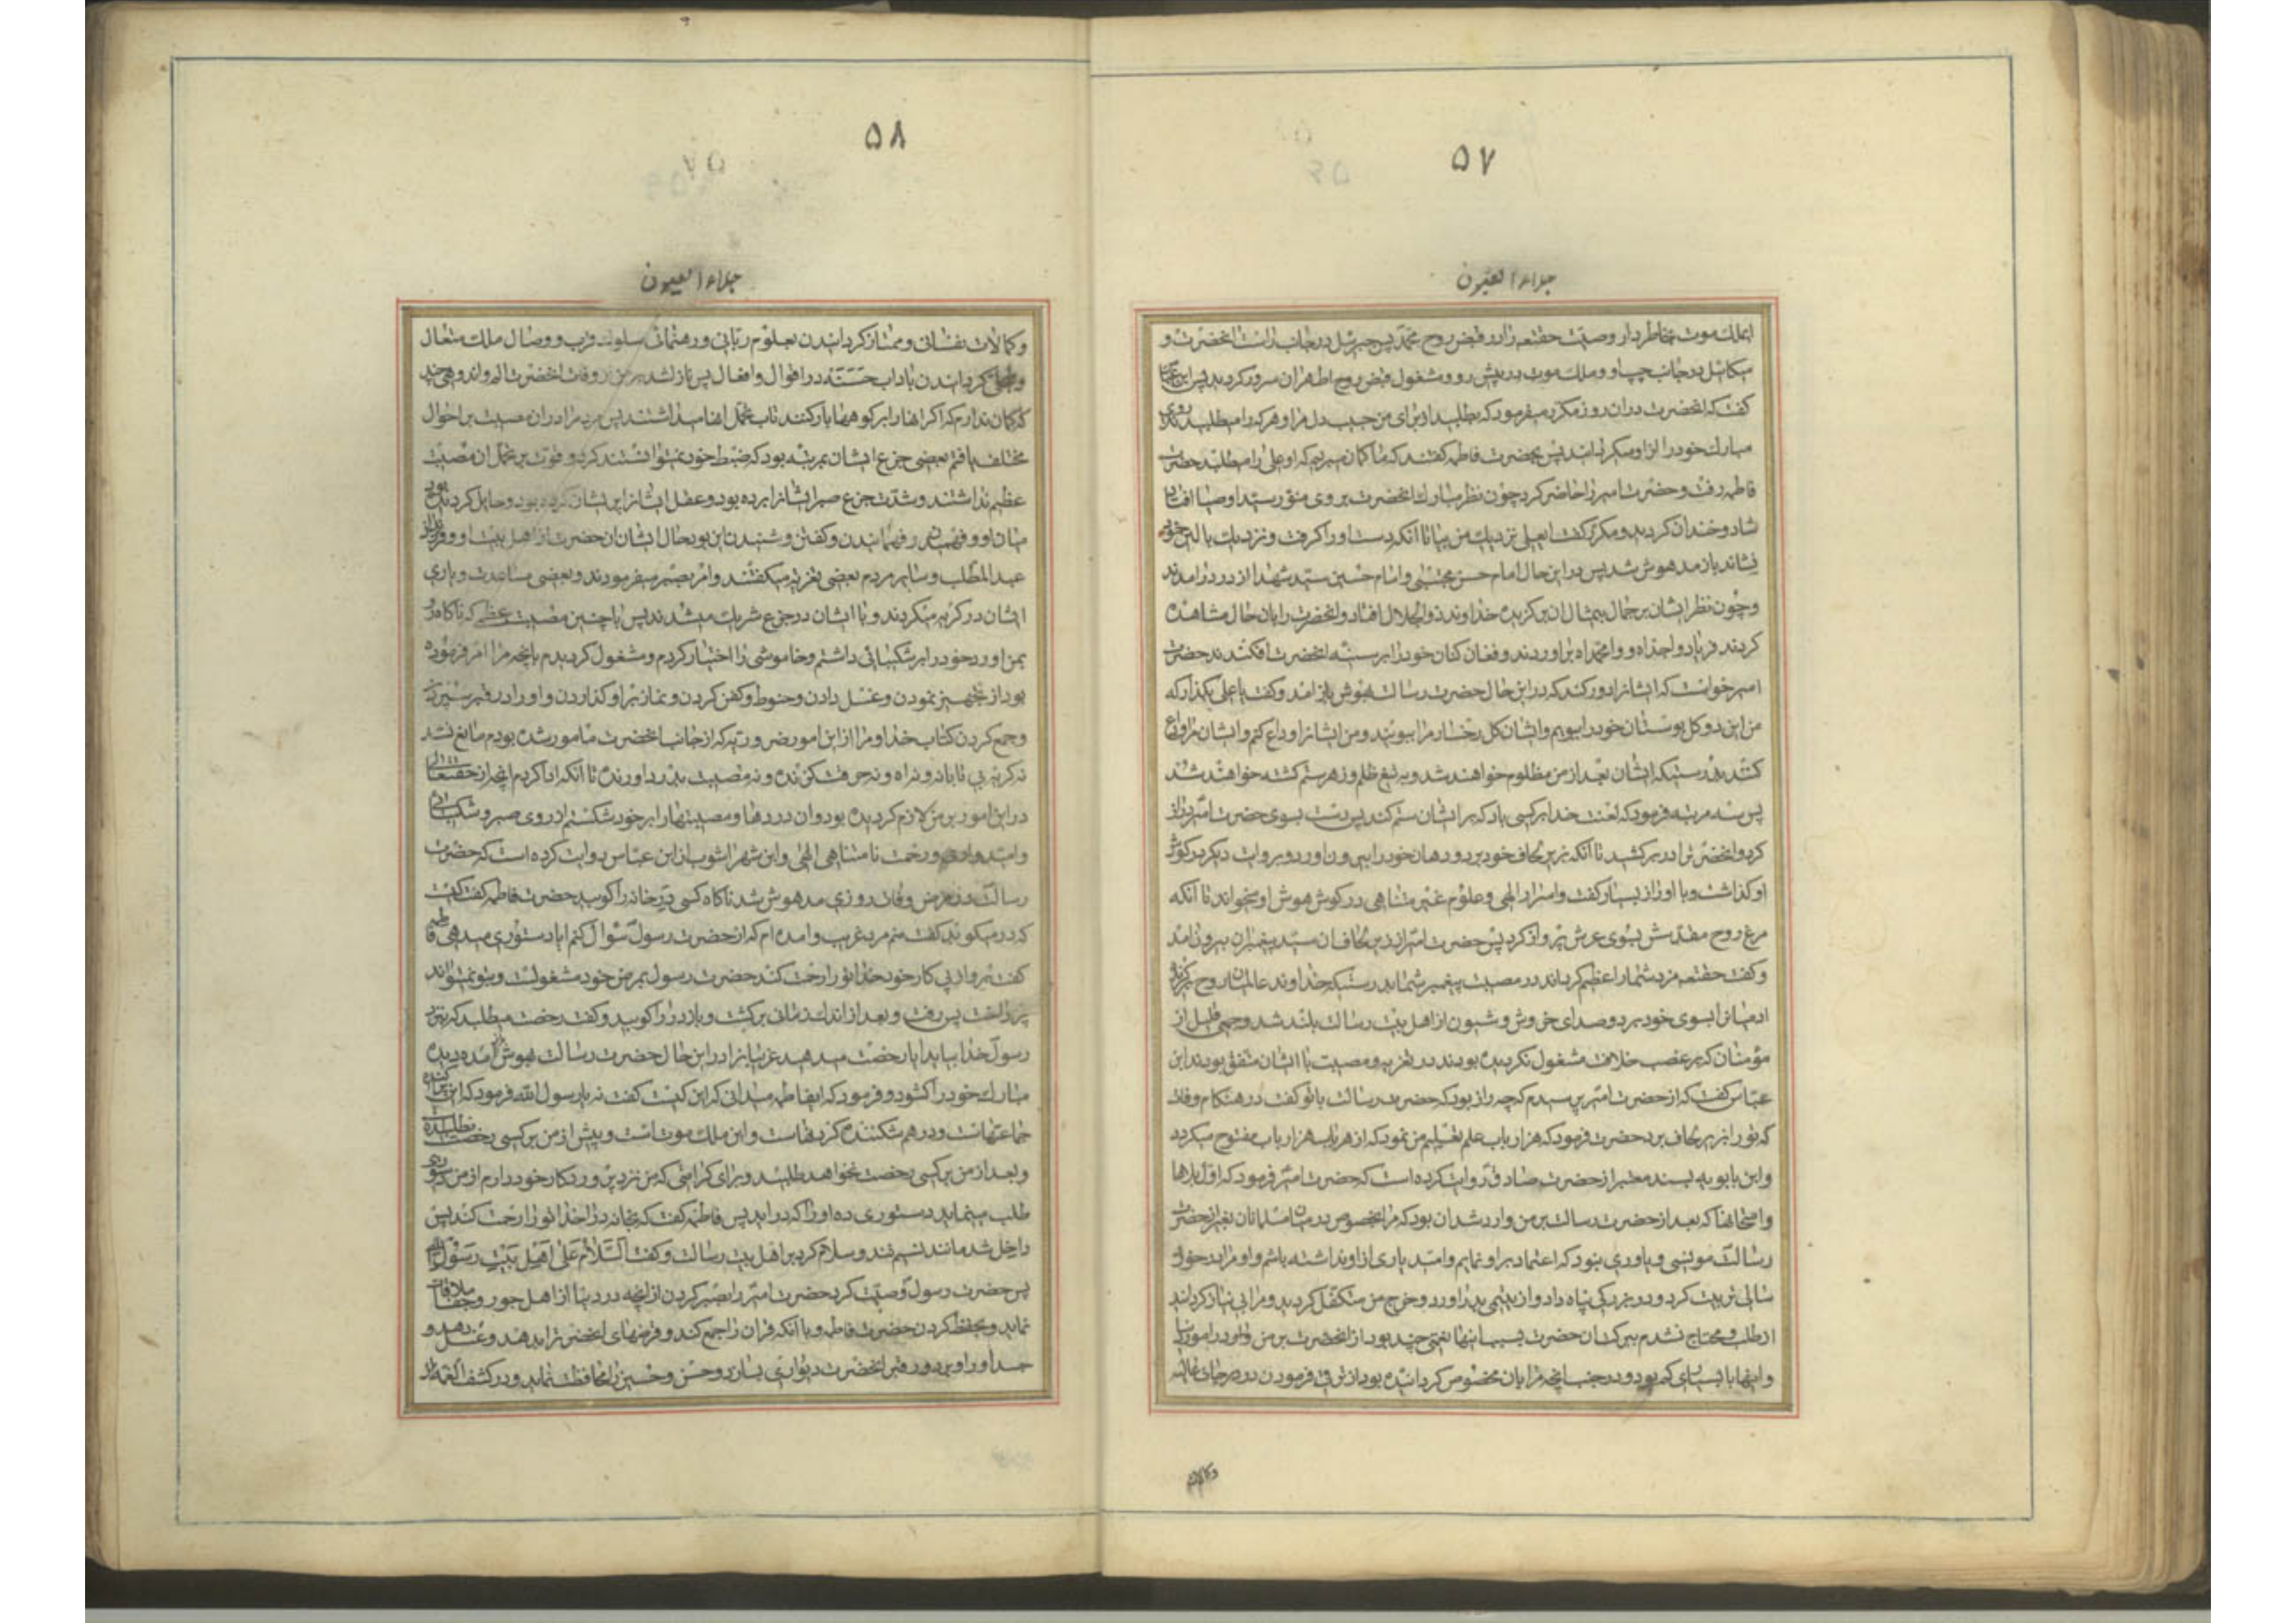 ۵۷
جلاء العیون
ایملك موت بخاطر دار وصیت حقتعه را در قبض روح محمد پس جبرئیل در جانب راست انحضرت و
میکائیل در جانب چپ او و ملك موت در پیش رو و مشغول قبض روح اطهر ان سرور کردید پس ابن عباس
کفت که انحضرت دران روز مکرر میفرمود که بطلبید از برای من حبیب دل مرا و هر که را میطلبیدند روی
مبارك خود را از او میکردانید پس بحضرت فاطمه کفتند که ما کمان میبریم که او علی را میطلبد حضرت
فاطمه رفت و حضرت امیر را حاضر کرد چون نظر مبارك انحضرت بر روی منور سید اوصیا افتاد
شاد و خندان کردید و مکرر کفت ایعلی نزدیك من بیا تا انکه دست او را کرفت و نزدیك بالین خود
نشاند باز مدهوش شد پس در این حال امام حسن مجتبی و امام حسین سید شهدا از در درامدند
و چون نظر ایشان بر جمال بیمثال ان برکزیده خداوند ذو الجلال افتاد و انحضرت را بان حال مشاهده
کردند فریاد واجداه و وامحمداه براوردند و فغان کنان خود را بر سینه انحضرت افکندند حضرت
امیر خواست که ایشانرا دور کند که در این حال حضرت رسالت بهوش باز امد و کفت یا علی بکذار که
من این دو کل بوستان خود را ببویم و ایشان کل رخسار مرا ببویند و من ایشانرا وداع کنم و ایشان مرا وداع
کنند بدرستیکه ایشان بعد از من مظلوم خواهند شد و به تیغ ظلم و زهر ستم کشته خواهند شد
پس سه مرتبه فرمود که لعنت خدا بر کسی باد که بر ایشان ستم کند پس دست بسوی حضرت امیر دراز
کرد و انحضرترا در بر کشید تا انکه زیر لحاف خود برد و دهان خود را بر دهن او و بروایت دیکر بر کوش
او کذاشت و با او راز بسیار کفت و اسرار الهی و علوم غیر متناهی در کوش هوش او میخواند تا انکه
مرغ روح مقدسش بسوی عرش پرواز کرد پس حضرت امیر از زیر لحاف ان سید پیغمبران بیرون امد
و کفت حقتعه مزد شما را عظیم کرداند در مصیبت پیغمبر شما بدرستیکه خداوند عالمیان روح برکزیده
ادمیانرا بسوی خود برد و صدای خروش و شیون از اهل بیت رسالت بلند شد و جمعی قلیل از
مؤمنان که بر غصب خلافت مشغول نکردیده بودند در تعزیه و مصیبت با ایشان متفق بودند ابن
عباس کفت که از حضرت امیر پرسیدم که چه راز بود که حضرت رسالت با تو کفت در هنکام وفات
که تو را زیر لحاف برد حضرت فرمود که هزار باب علم تعلیم من نمود که از هر باب هزار باب مفتوح میکردد
و ابن بابویه بسند معتبر از حضرت صادق روایت کرده است که حضرت امیر فرمود که اول بلاها
و امتحانها که بعد از حضرت رسالت بر من وارد شد ان بود که مرا بخصوص در میان مسلمانان بغیر از حضرت
رسالت مونسی و یاوری نبود که اعتماد بر او نمایم و امید یاری از او نداشته باشم و او مرا در خورد
سالی تربیت کرد و در بزرکی پناه داد و از یتیمی بدر اورد و خرج من متکفل کردید و مرا بی نیاز کردانید
از طلب و محتاج نشدم ببرکت ان حضرت بسببها اینها نعمتی چند بود از انحضرت بر من وارد در امور دنیا
و اینها با بسیاری کم بود در جنب انچه مرا بان مخصوص کردانیده بود از ترقی فرمودن در درجات عالیه
وکمالات
۵۸
جلاء العیون
و کمالات نفسانی و ممتاز کردانیدن بعلوم ربانی و رهنمائی سلوك قرب و وصال ملك متعال
و متحلی کردانیدن باداب حسنه در اقوال و افعال پس نازل شد بر من از وفات انحضرت الم و اندوهی چند
که کمان ندارم که اکر انها را بر کوهها بار کنند تاب تحمل انها میداشتند پس مردم را در ان مصیبت بر احوال
مختلف یافتم بعضی جزع ایشان بمرتبه بود که ضبط خود نمیتوانستند کرد و قوت بر تحمل ان مصیبت
عظیم نداشتند و شدت جزع صبر ایشانرا برده بود و عقل ایشانرا پریشان کرده بود و حایل کردیده بود
میان او و فهمیدن و فهمانیدن و کفتن و شنیدن این بود حال ایشان ان حضرت از اهل بیت او و فرزندان
عبد المطلب و سایر مردم بعضی تعزیه میکفتند و امر بصبر میفرمودند و بعضی مساعدت و یاری
ایشان در کریه میکردند و با ایشان در جزع شریك میشدند پس با چنین مصیبت عظمی که ناکاه رو
بمن اورد خود را بر شکیبائی داشتم و خاموشی را اختیار کردم و مشغول کردیدم بانچه مرا امر فرموده
بود از تجهیز نمودن و غسل دادن و حنوط و کفن کردن و نماز بر او کذاردن و او را در قبر سپردن
و جمع کردن کتاب خدا و مرا از این امور ضروریه که از جانب انحضرت مامور شده بودم مانع نشد
نه کریه بی تابانه و نه اه و نه حرقت کننده و نه مصیبت بدرد اورنده تا انکه ادا کردم انچه از حقتعالی
در این امور بر من لازم کردیده بود و ان دردها و مصیبتها را بر خود شکستم از روی صبر و شکیبائی
و امیدواری و رحمت نامتناهی الهی و ابن شهراشوب از ابن عباس روایت کرده است که حضرت
رسالت در مرض وفات روزی مدهوش شد ناکاه کسی در خانه را کوبید حضرت فاطمه کفت کیست
که در میکوبد کفت منم مرد غریب و امده ام که از حضرت رسول سؤال کنم ایا دستوری میدهی فاطمه
کفت برو از پی کار خود خدا تو را رحمت کند حضرت رسول بمرض خود مشغولست و بتو نمیتواند
پرداخت پس رفت و بعد از اندك زمانی برکشت و باز در را کوبید و کفت رخصت میطلبد که بنزد
رسول خدا بیاید ایا رخصت میدهید غریبانرا در این حال حضرت رسالت بهوش امده دیده
مبارك خود را کشود و فرمود که ایفاطمه میدانی که این کیست کفت نه یا رسول الله فرمود که این پراکنده کننده
جماعتهاست و درهم شکننده لذتهاست و این ملك موتست و پیش از من بر کسی رخصت نطلبیده
و بعد از من بر کسی رخصت نخواهد طلبید و برای کرامتی که من نزد پروردکار خود دارم از من دستوری
طلب مینماید دستوری ده او را که دراید پس فاطمه کفت که بخانه درا خدا تو را رحمت کند پس
داخل شد مانند نسیم تند و سلام کرد بر اهل بیت رسالت و کفت السلام علی اهل بیت رسول الله
پس حضرت رسول وصیت کرد حضرت امیر را بصبر کردن از انچه در دنیا از اهل جور و جفا ملاقات
نماید و بحفظ کردن حضرت فاطمه و با انکه قران را جمع کند و قرضهای انحضرترا بدهد و غسل دهد و
جسد او را و بر دور قبر انحضرت دیواری بسازد و حسن و حسین را محافظت نماید و در کشف الغمه از